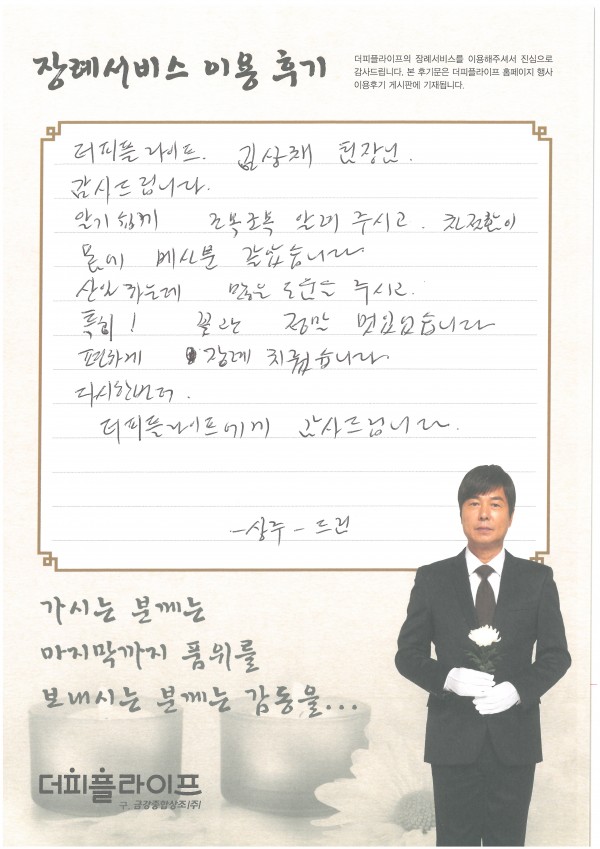 장례서비스 이용 후기
더피플라이프의 장례서비스를 이용해주셔서 진심으로
감사드립니다. 본 후기문은 더피플라이프 홈페이지 행사
이용후기 게시판에 기재됩니다.
더피플라이프. 김상채 팀장님.
감사드립니다.
알기쉽게 조목조목 알려 주시고. 친절함이
몸에 베신분 같았습니다
상일 하는데 많은 도움을 주시고.
특히! 꽃관 정말 멋있었습니다
편하게 장례 치뤘습니다.
다시한번더.
더피플라이프에게 감사드립니다.
-상주- 드림
가시는 분께는
마지막까지 품위를
보내시는 분께는 감동을...
더피플라이프
구. 금강종합상조(주)